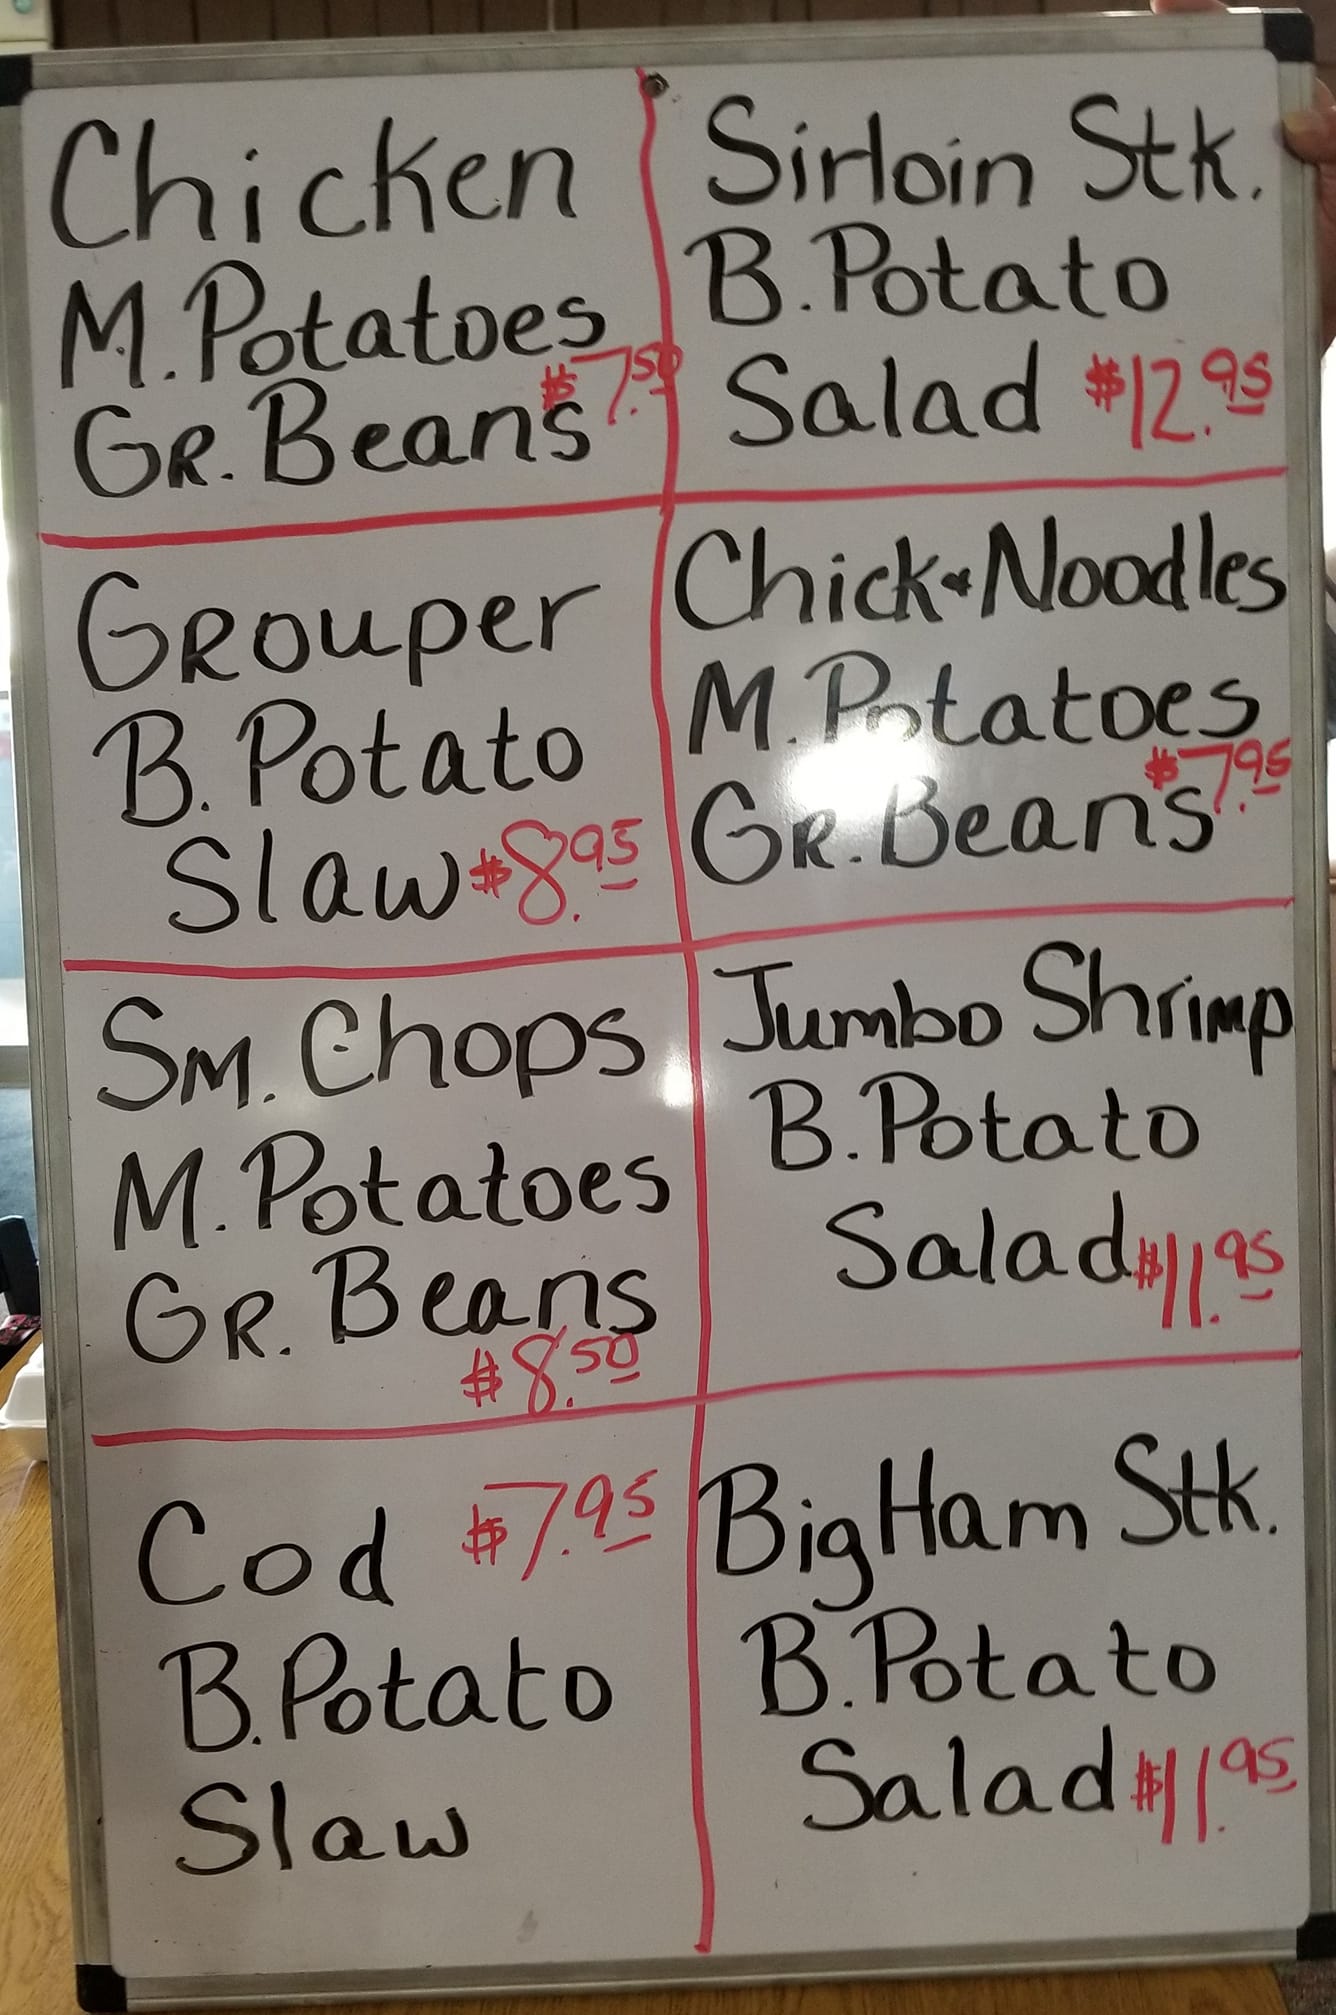 Chicken
M. Potatoes
Gr. Beans $7.50
Sirloin Stk.
B. Potato
Salad $12.95
Grouper
B. Potato
Slaw $8.95
Chick & Noodles
M. Potatoes
Gr. Beans $7.95
Sm. Chops
M. Potatoes
Gr. Beans
$8.50
Jumbo Shrimp
B. Potato
Salad $11.95
Cod $7.95
B. Potato
Slaw
Big Ham Stk.
B. Potato
Salad $11.95